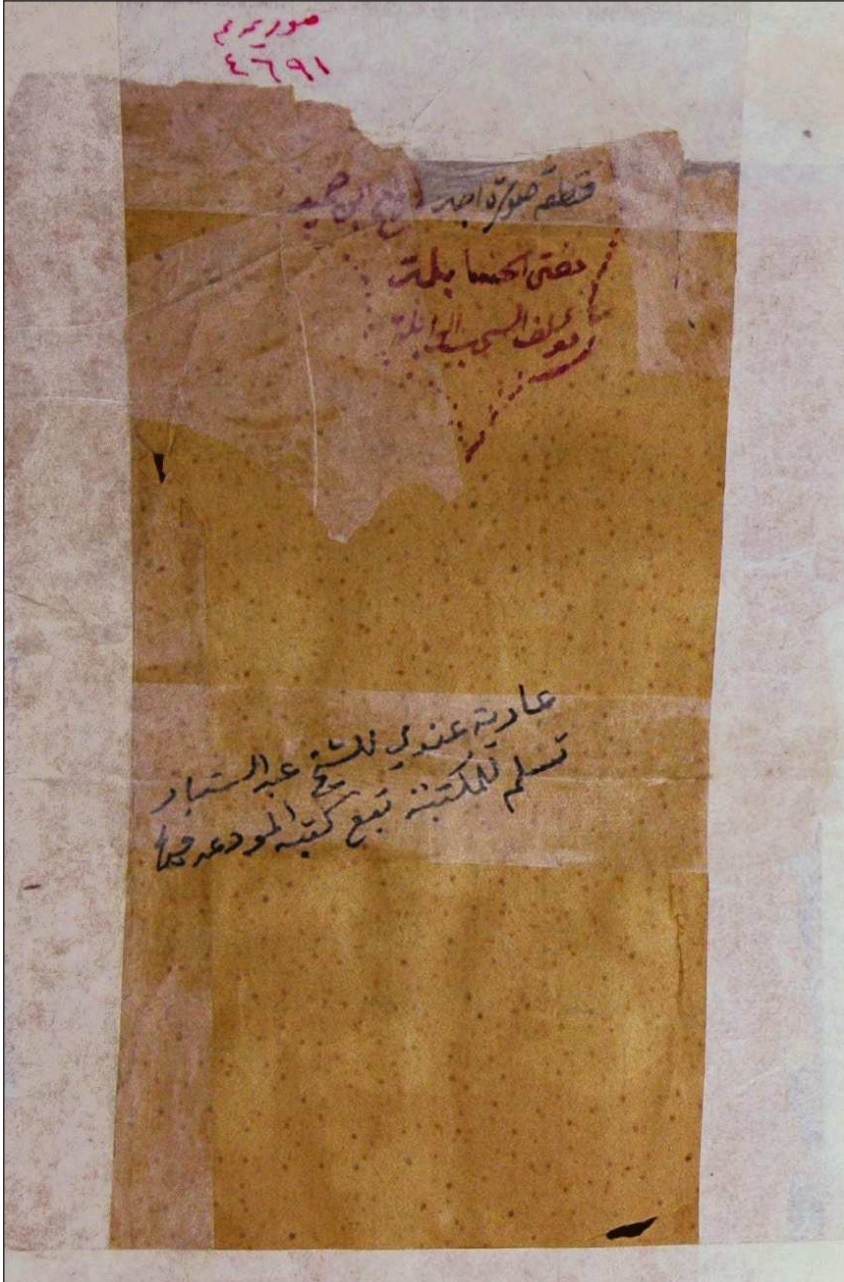 ٤٦٩١
بن حميد
مفتي الحنابلة
مؤلف السحب الوابلة
عارية عندي للشيخ عبد الستار
تسلم للمكتبة تبع كتبه المودعه